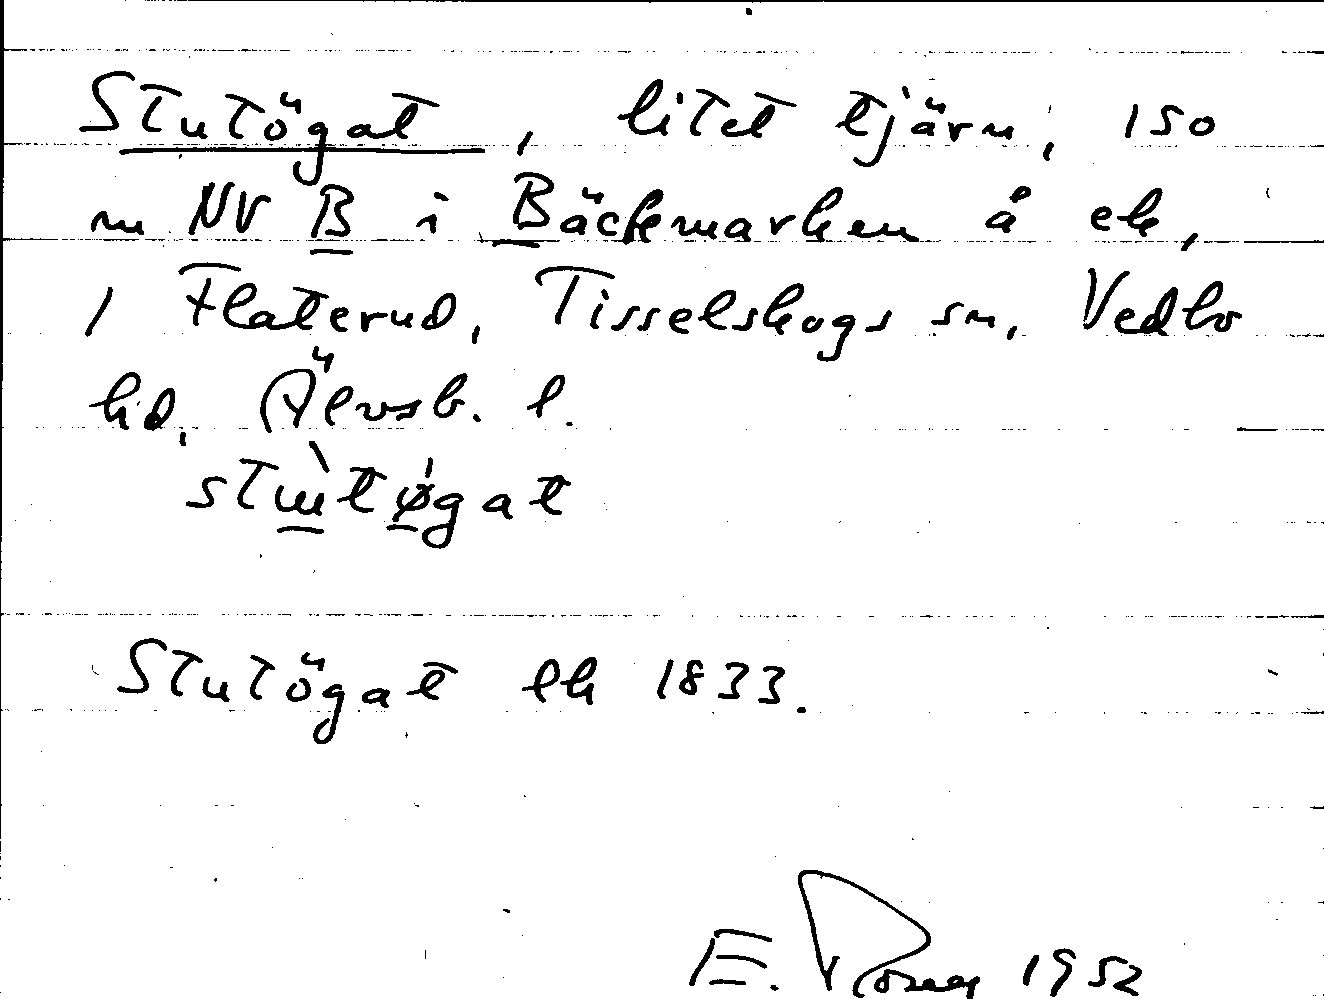 Stutögat, litet tjärn, 150
m NV B i Bäckmarken å ek,
1 Flaterud, Tisselskogs sn, Vedbo
hd, Älvsb. l.
stɯ̀tǿgat
Stutögat ek 1833.
E. 1952